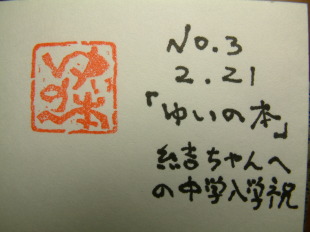 ゆいの本
No.3
2.21
「ゆいの本」
結ちゃんへ
の中学入学祝